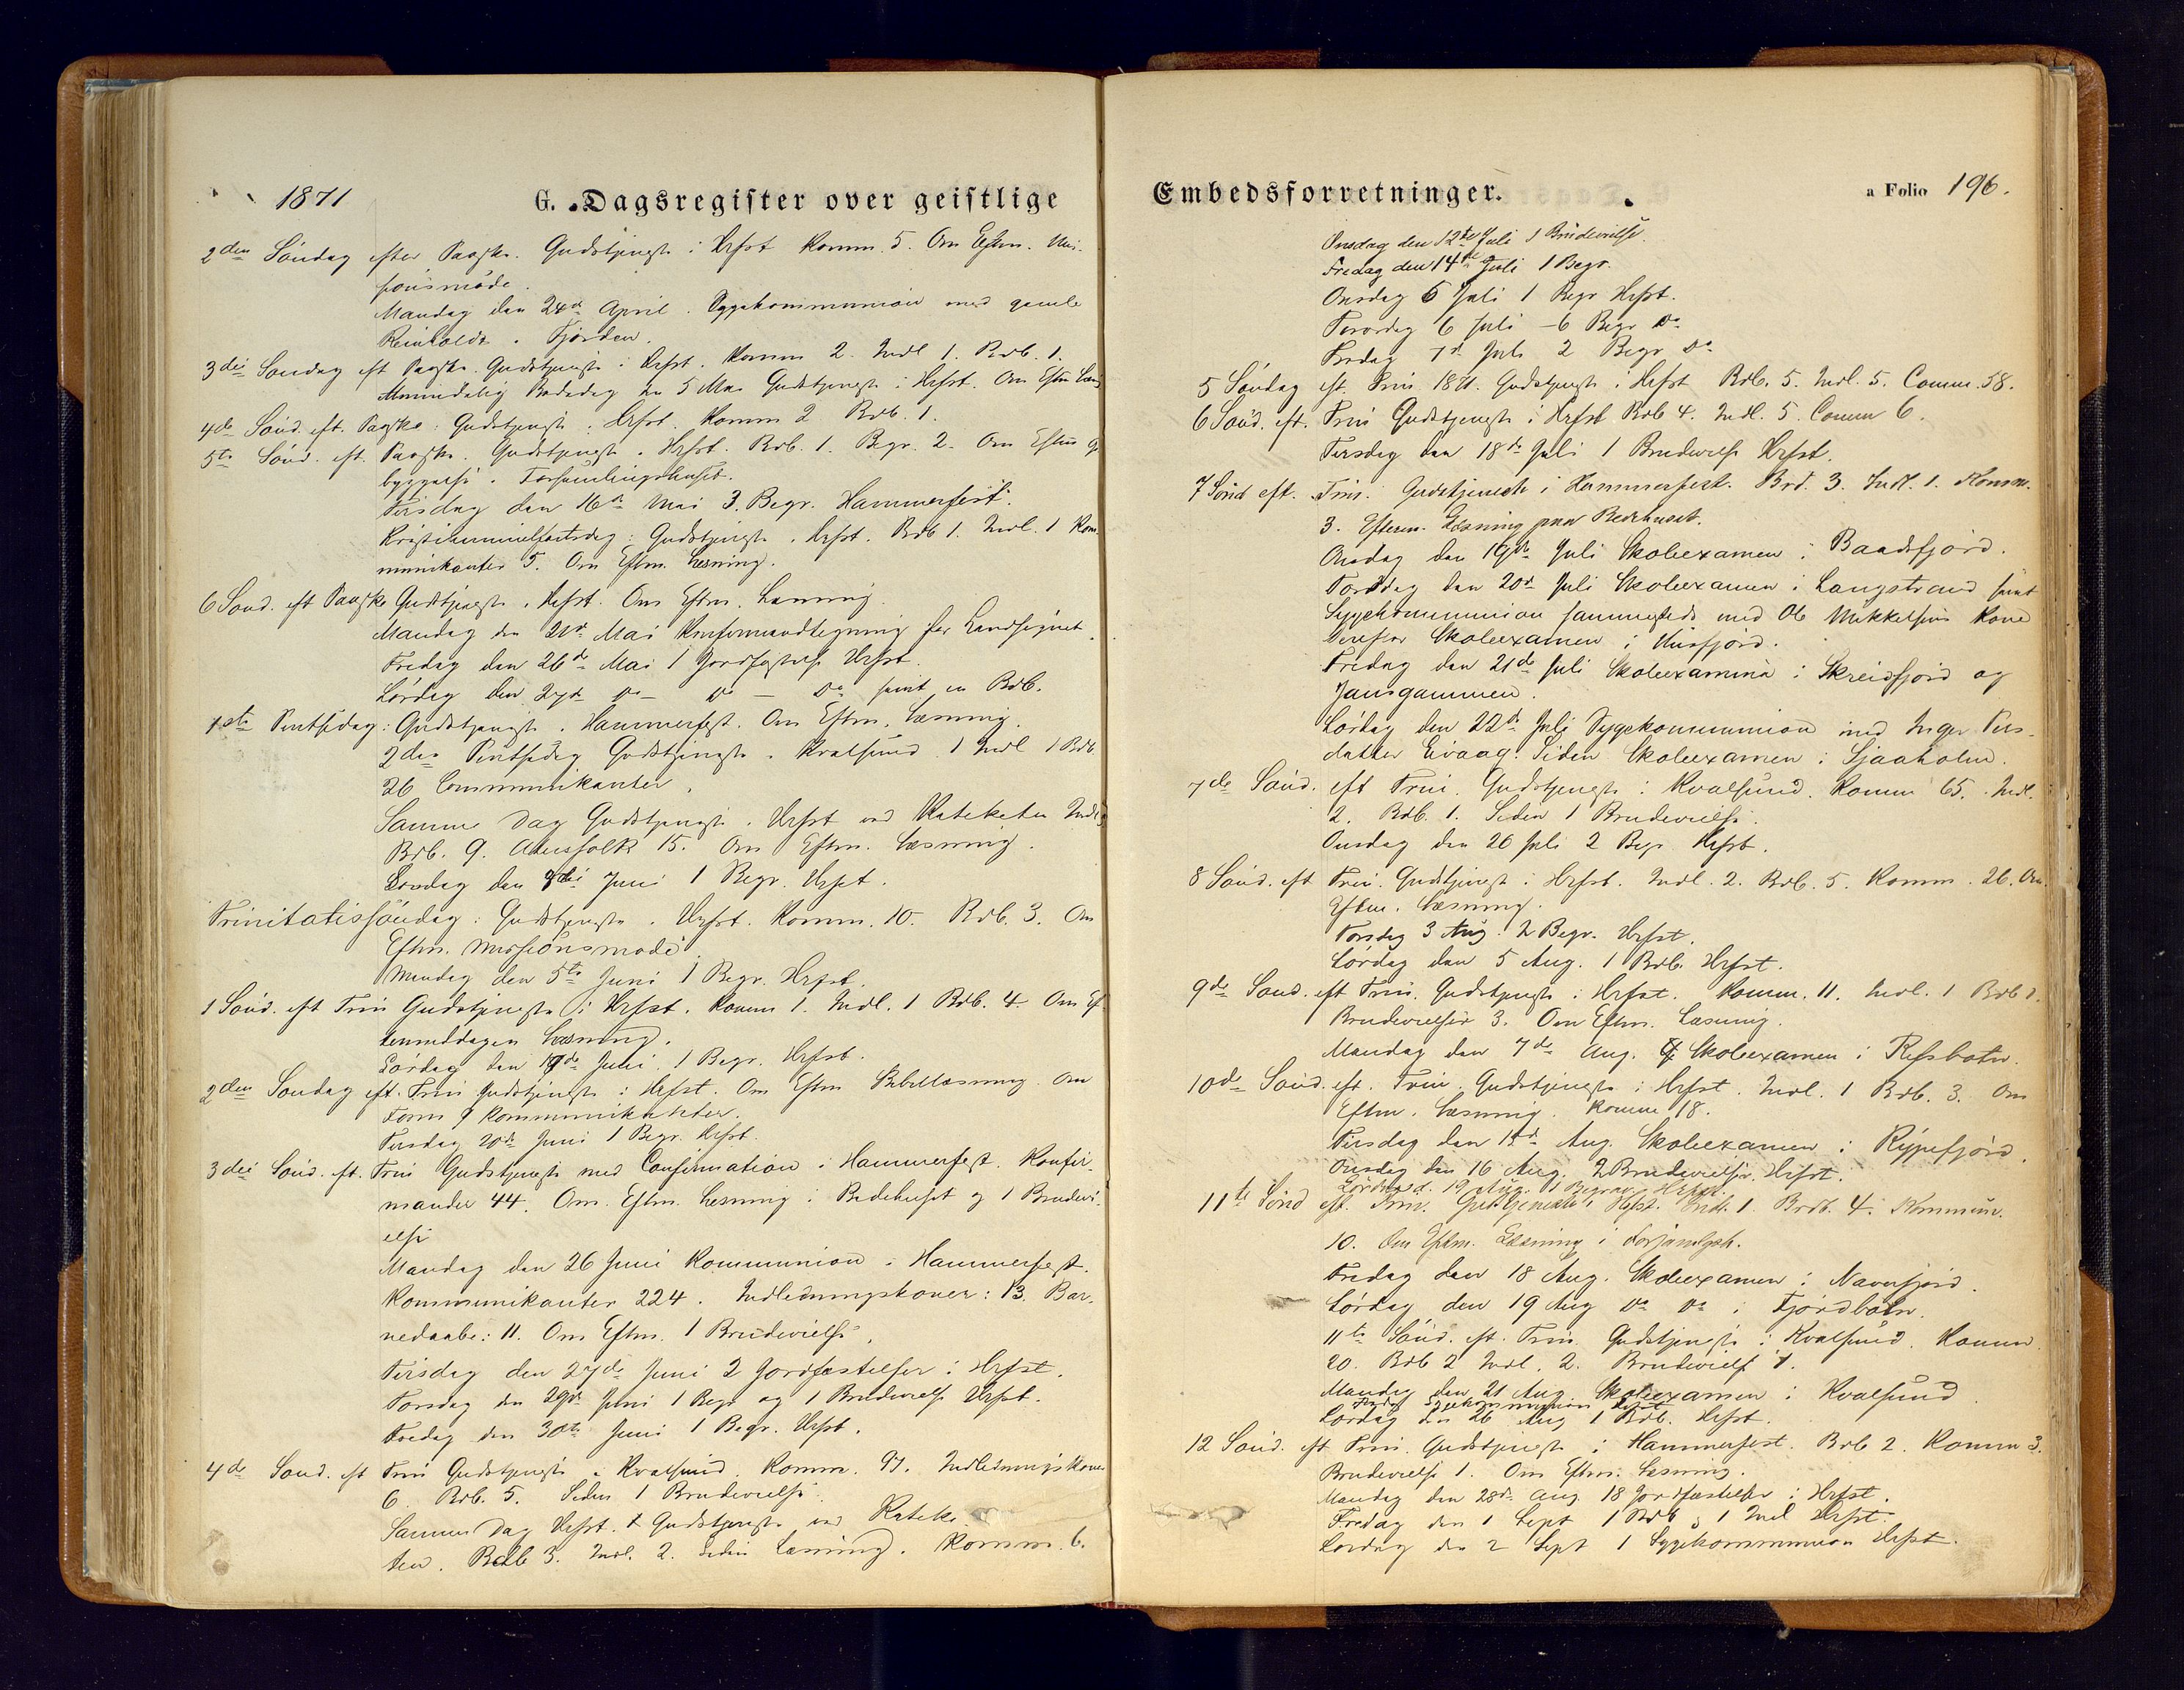 1871
G. Dagsregister over geistlige
2den Søndag efter Paaske. Gudstjeneste i Hrfst Komm. 5. Om Eftm. Mis-
sionsmøde.
Mandag den 24de April. Sygekommunion med gamle
Reinholdt i Fjorden.
3die Søndag eft Paaske. Gudstjeneste i Hrfst. Komm 2. Indl 1. Brb. 1.
Almindelig Bededag den 5 Mai Gudstjeneste i Hrfst. Om Eftm Læs
4de Sønd. eft. Paaske: Gudstjeneste i Hrfst. Komm 2 Brb. 1.
5te Sønd. eft. Paaske. Gudstjeneste i Hrfst. Brb. 1. Begr. 2. Om Eftm
byggelse i Forsamlingshuset.
Tirsdag den 16de Mai 3. Begr. Hammerfest.
Kristihimmelfartsdag: Gudstjeneste i Hrfst. Brb 1. Indl. 1 Kom-
munikanter 5. Om Eftm. Læsning.
6 Sønd. eft Paaske Gudstjeneste i Hrfst. Om Eftm. Læsning.
Mandag den 22de Mai Konfirmandtegning for Landsognet.
Fredag den 26de Mai 1 Jordfestelse Hrfst.
Lørdag den 27de do — do — do samt en Brb.
1ste Pintsedag: Gudstjeneste i Hammerfest. Om Eftm. Læsning.
2den Pintsedag Gudstjeneste i Kvalsund 1 Indl 1 Brb.
26 Communikanter.
Samme Dag Gudstjeneste i Hrfst ved Kateketen Indl 3
Brb. 9. Om Eftm. Læsning.
den Juni 1 Begr. Hrfst.
Trinitatissøndag: Gudstjeneste i Hrfst. Komm. 10. Brb. 3. Om
Eftm. Missionsmøde.
Mandag den 5te Juni 1 Begr. Hrfst.
1 Sønd. eft Trin Gudstjeneste i Hrfst. Komm 1. Indl. 1 Brb. 4. Om Ef-
termiddagen Læsning.
Lørdag den 17de Juni. 1 Begr. Hrfst.
2den Søndag eft. Trin Gudstjeneste i Hrfst. Om Eftm Bibellæsning. Om
Form 9 Kommunikanter.
Tirsdag 20de Juni 1 Begr. Hrfst.
3die Sønd. eft. Trin Gudstjeneste med Confirmation i Hammerfest. Konfir-
mander 44. Om. Eftm. Læsning i Bedehuset og 1 Brudevi-
else
Mandag den 26 Juni Kommunion i Hammerfest.
Kommunikanter 224. Indledningskoner: 13. Bar-
nedaabe: 11. Om Eftm. 1 Brudevielse.
Tirsdag den 27de Juni 2 Jordfæstelser i Hrfst.
Torsdag den 29de Juni 1 Begr og 1 Brudevielse Hrfst.
Fredag den 30te Juni 1 Begr. Hrfst.
4de Sønd. eft Trin Gudstjeneste i Kvalsund. Komm. 91. Indledningskoner
6. Brb. 5. Siden 1 Brudevielse.
Samme Dag Hrfst. Gudstjeneste ved Kateke-
ten. Brb 3. Indl. 2. Siden Læsning. Komm. 6.
Embedsforretninger.
a Folio 196.
Onsdag den 12te Juli 1 Brudevielse.
Fredag den 14de Juli 1 Begr.
Onsdag 5 Juli 1 Begr Hrfst.
Torsdag 6 Juli — 6 Begr do
Fredag 7de Juli 2 Begr do
5 Søndag eft Trin 1871. Gudstjeneste i Hrfst Brb. 5. Indl. 5. Comm. 58.
6 Sønd. eft. Trin Gudstjeneste i Hrfst Brb 4. Indl. 5. Comm 6.
Tirsdag den 18de Juli 1 Brudevielse Hrfst.
7 Sønd eft. Trin. Gudstjeneste i Hammerfest. Brd. 3. Indl. 1. Komm.
3. Efterm. Læsning paa Bedehuset.
Onsdag den 19de Juli Skoleexamen i Baadsfjord.
Torsdag den 20de Juli Skoleexamen i Langstrand samt
Sygekommunion sammesteds med Ole Mikkelsens Kone
Derefter Skoleexamen i
Fredag den 21de Juli Skoleexamina i Skreidfjord og
Jansgammen.
Lørdag den 22de Juli Sygekommunion med Inger Pers-
datter Eivaag. Siden Skoleexamen i Sjaaholm.
7de Sønd. eft Trin. Gudstjeneste i Kvalsund. Komm 65. Indl.
2. Brb. 1. Siden 1 Brudevielse.
Onsdag den 26 Juli 2 Begr. Hrfst.
8 Sønd. eft Trin. Gudstjeneste i Hrfst. Indl. 2. Brb. 5. Komm. 26. Om
Eftm. Læsning.
Torsdag 3 Aug. 2 Begr. Hrfst.
Lørdag den 5 Aug. 1 Brb. Hrfst.
9de Sønd. eft Trin. Gudstjeneste i Hrfst. Komm. 11. Indl. 1 Brb 1.
Brudevielser 3. Om Eftm. Læsning.
Mandag den 7de Aug. Skoleexamen i Refsbotn.
10de Sønd. eft. Trin. Gudstjeneste i Hrfst. Indl. 1 Brb. 3. Om
Eftm. Læsning. Komm 18.
Tirsdag den 15de Aug. Skoleexamen i Rypefjord.
Onsdag den 16 Aug. 2 Brudevielser Hrfst.
Lørdag d. 19 Aug. 1 Begrav. Hrfst.
11te Sønd eft. Trin. Gudstjeneste i Hrfst. Indl. 1. Brdb. 4. Kommun.
10. Om Eftm. Læsning i Forsamlgsh.
Fredag den 18 Aug. Skoleexamen i Naverfjord.
Lørdag den 19 Aug do do i Fjordbotn.
11te Sønd. eft. Trin. Gudstjeneste i Kvalsund. Komm
20. Brb 2 Indl. 2. Brudevielse 1.
Mandag den 21 Aug. Skoleexamen i Kvalsund.
Lørdag den 26 Aug 1 Brb. Hrfst.
12 Sønd. eft Trin. Gudstjeneste i Hammerfest. Brb 2. Komm 3.
Brudevielse 1. Om Eftm. Læsning.
Mandag den 28de Aug. 18 Jordfæstelser i Hrfst.
Fredag den 1 Sept 1 Brb & 1 Indl Hrfst.
Lørdag den 2 Sept 1 Sygekommunion Hrfst.